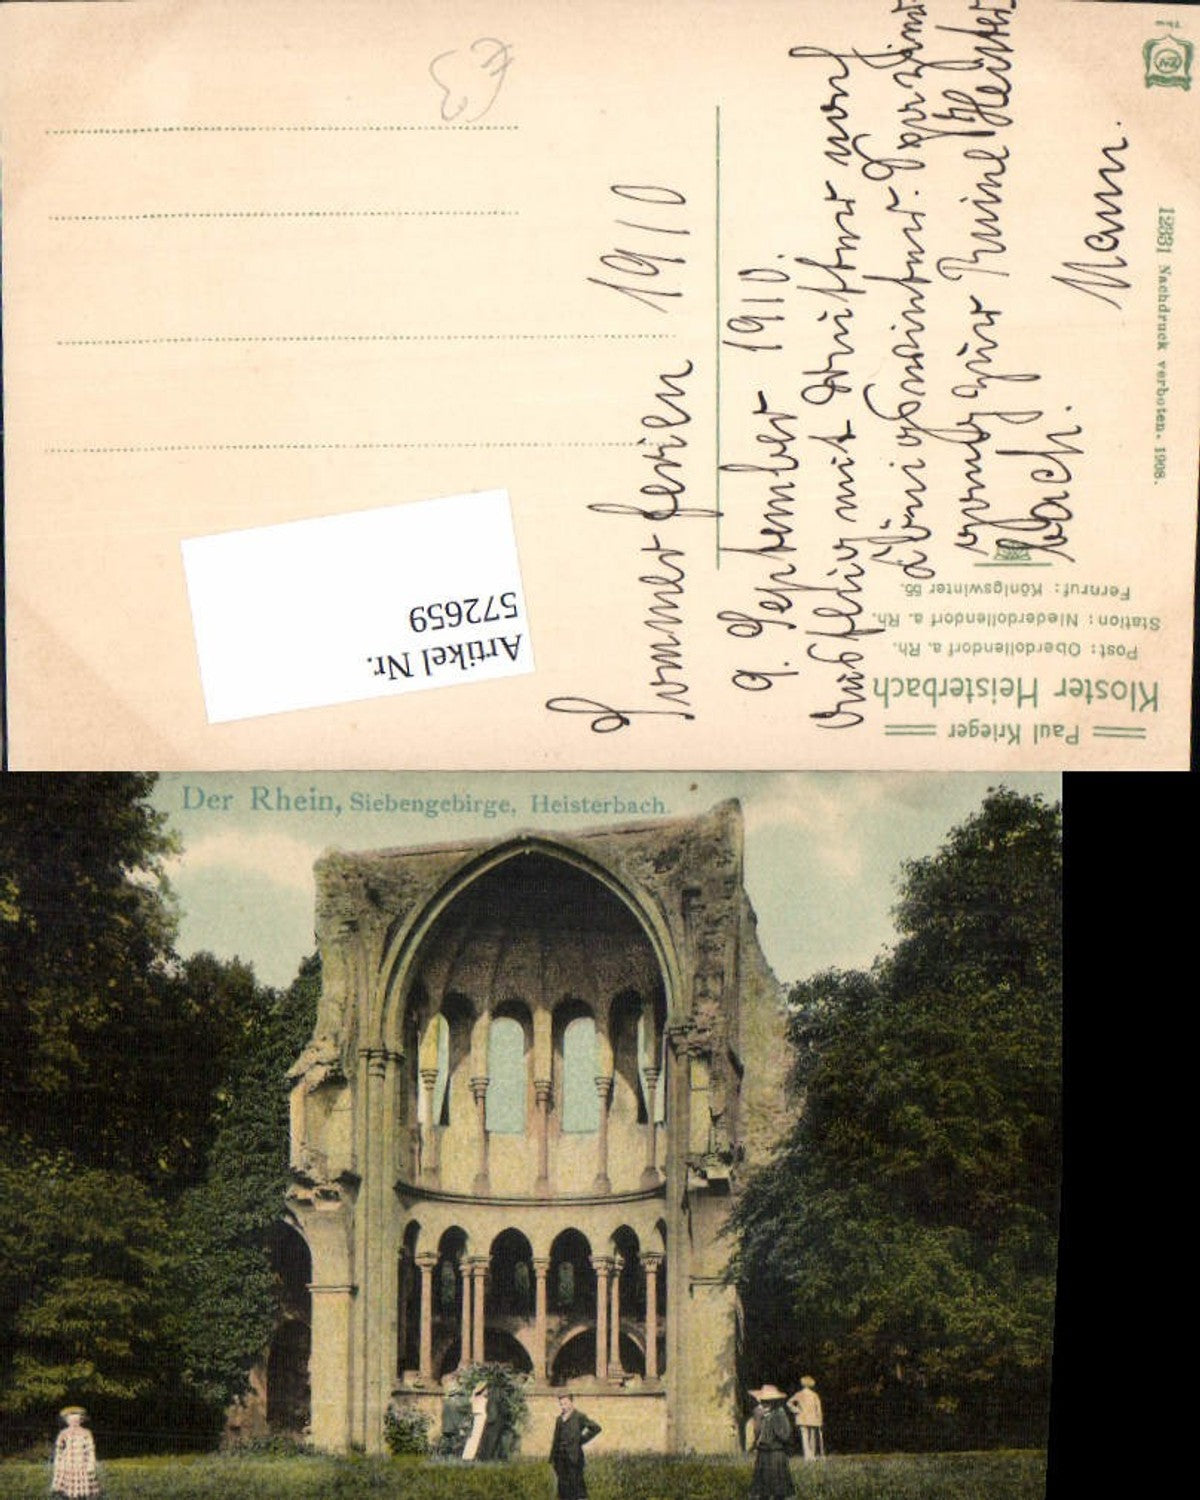 Sommerferien 1910
9. September 1910.
Ausflug mit Mutter nach
Königswinter. Von
zur Ruine Heister
bach.
Mann.
12331 Nachdruck verboten. 1908.
Paul Krieger
Kloster Heisterbach
Post: Oberdollendorf a. Rh.
Station: Niederdollendorf a. Rh.
Fernruf: Königswinter 55.
Artikel Nr.
572659
Der Rhein, Siebengebirge, Heisterbach.